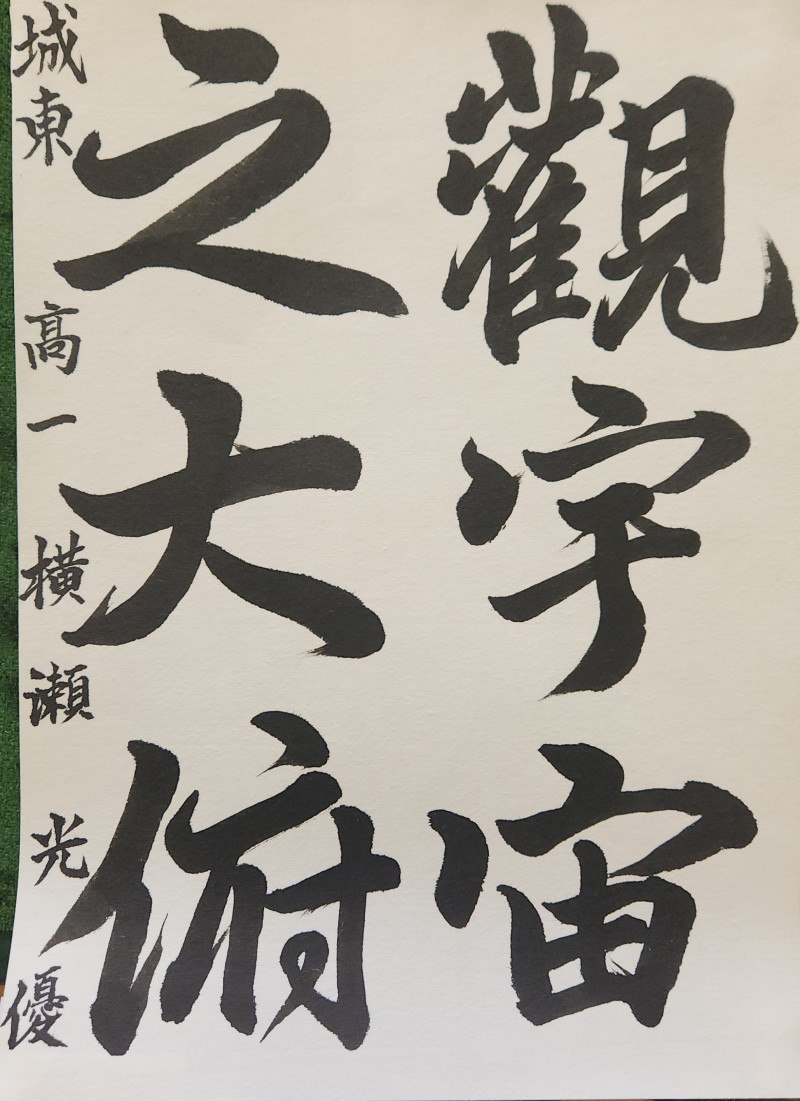 觀宇宙
之大俯
城東 高一 横瀬 光優